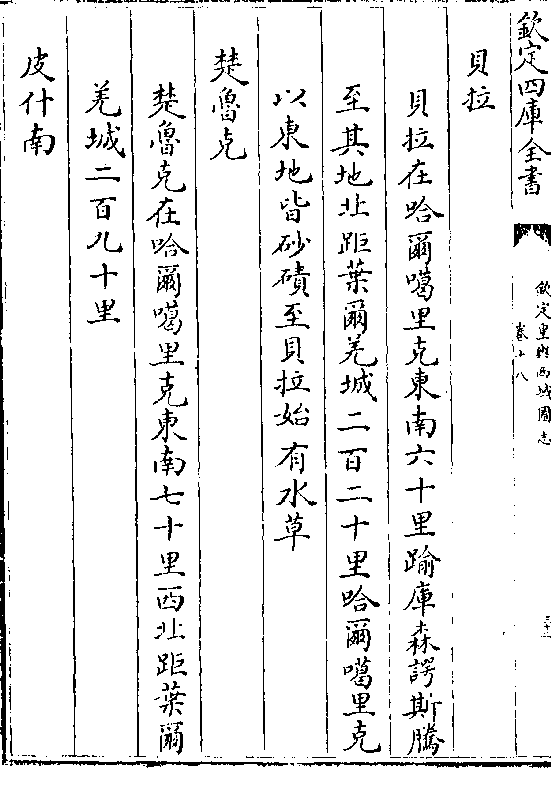 欽定四庫全書
貝拉
貝拉在哈爾噶里克東南六十里踰庫森諤斯騰
至其地北距葉爾羌城二百二十里哈爾噶里克
以東地皆砂磧至貝拉始有水草
楚魯克
楚魯克在哈爾噶里克東南七十里西北距葉爾
羌城二百九十里
皮什南
欽定皇輿西域圖志
卷十八